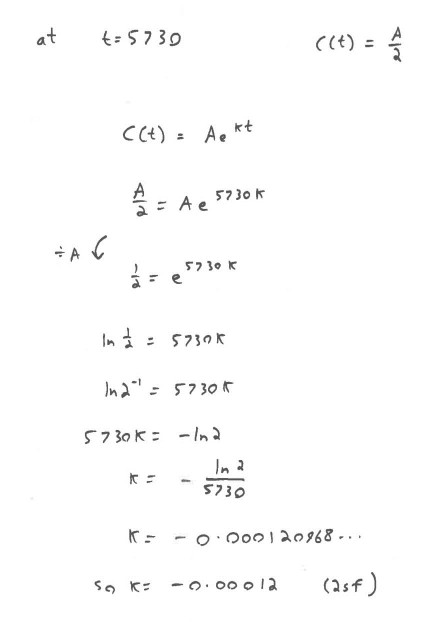 at t=5730 C(t) = A/2
C(t) = Ae^kt
A/2 = Ae^5730K
÷A
1/2 = e^5730K
ln 1/2 = 5730K
ln2^-1 = 5730K
5730K = -ln2
K = - ln2/5730
K = -0.000120968...
so K= -0.00012 (2sf)